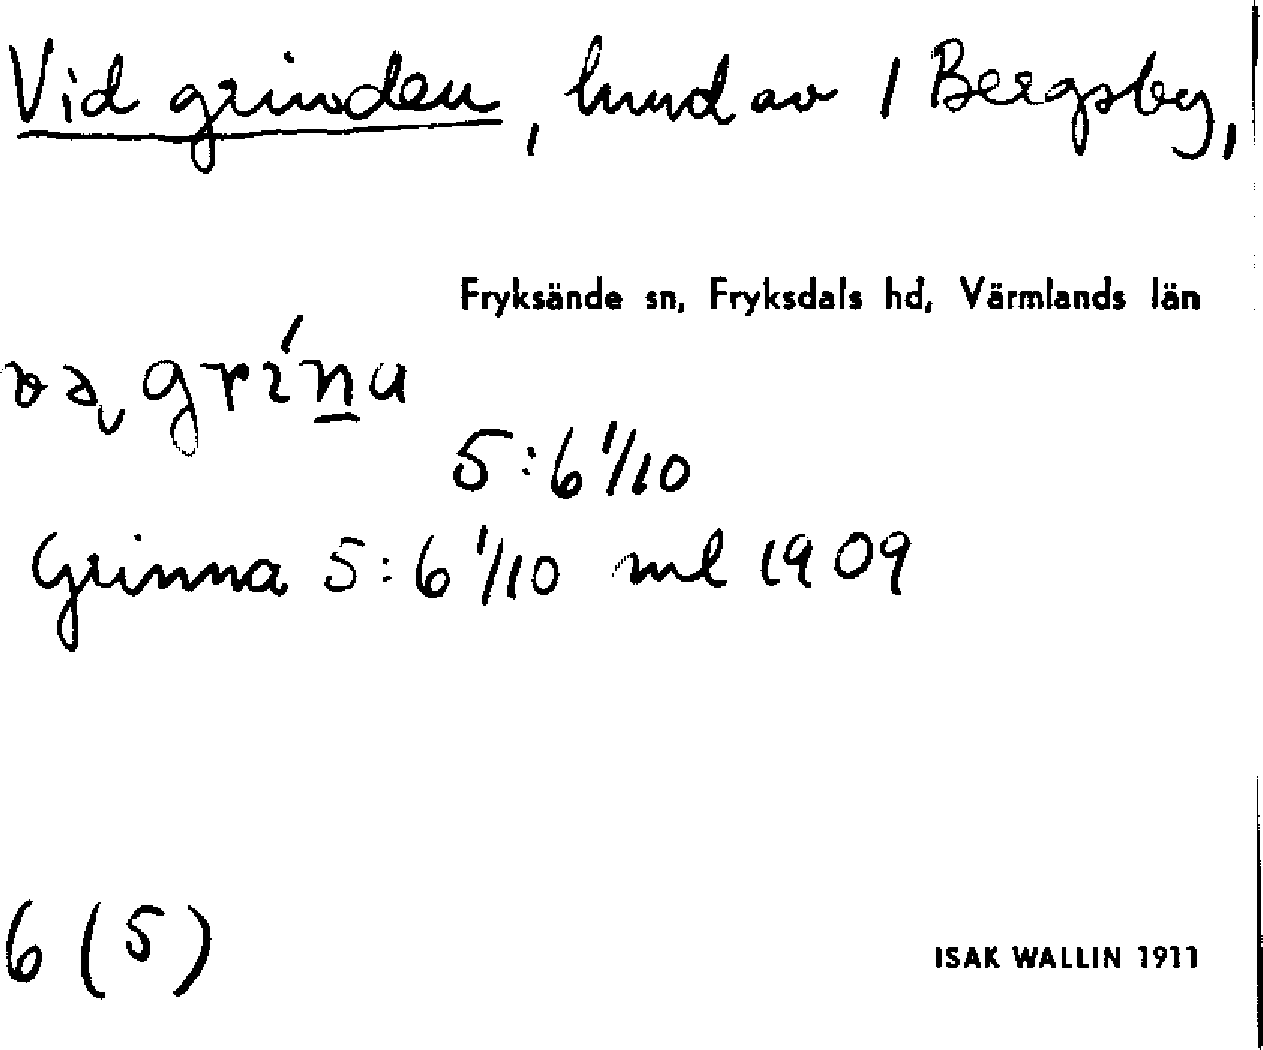 Vid grinden, hmd av 1 Bergsby,
Fryksände sn, Fryksdals hd, Värmlands län
5:6 1/10
Grinna 5:6 1/10 ml 1909
6 (5)
ISAK WALLIN 1911